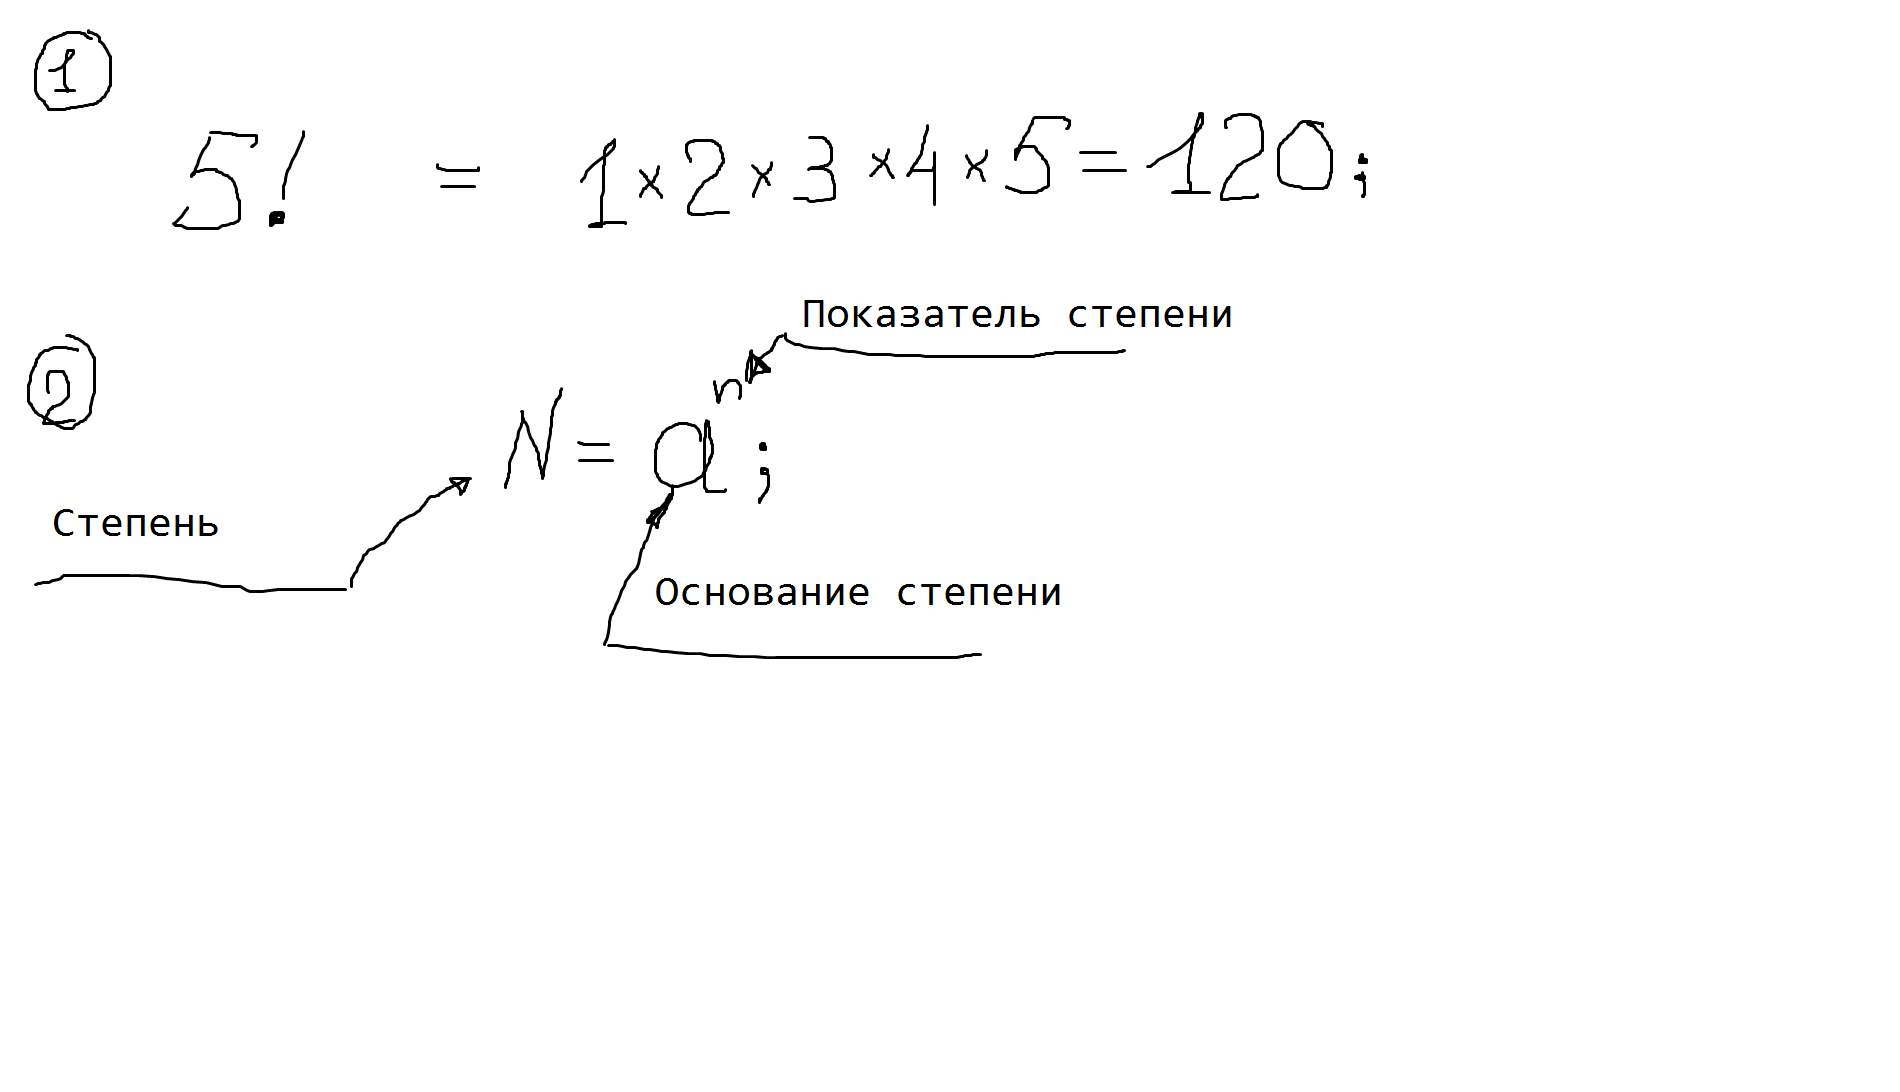 1
5! = 1×2×3×4×5=120;
Показатель степени
2
N = aⁿ;
Степень
Основание степени